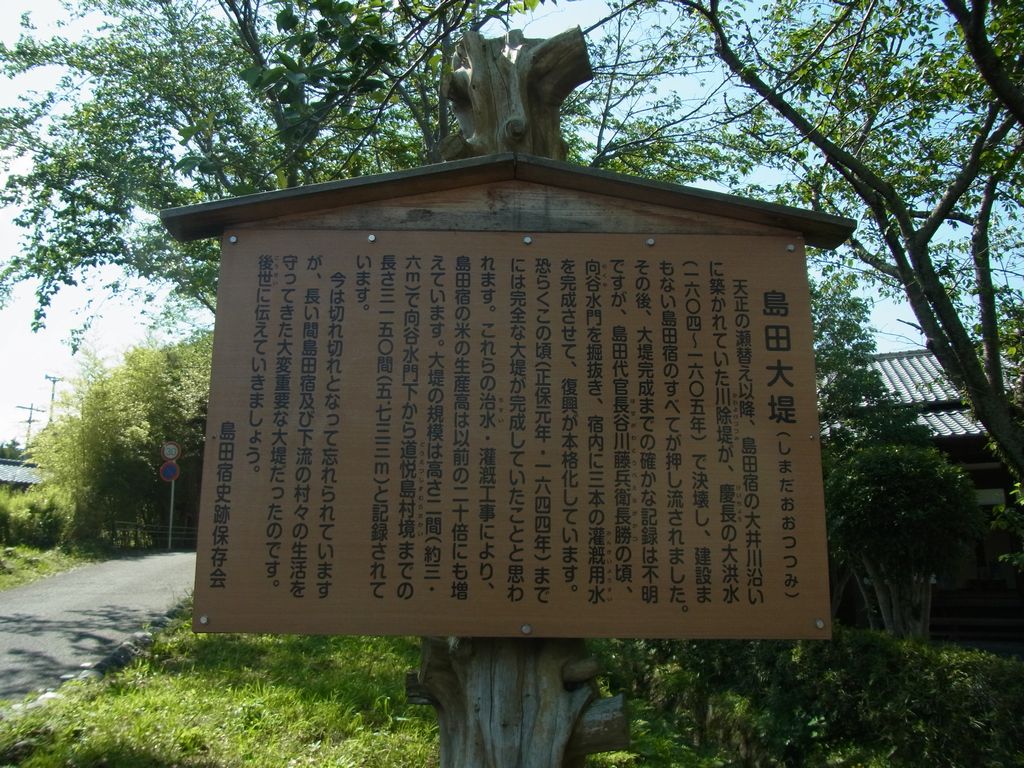 島田大堤（しまだおおつつみ）
天正の瀬替え以降、島田宿の大井川沿い
に築かれていた川除堤が、慶長の大洪水
（一六〇四～一六〇五年）で決壊し、建設ま
もない島田宿のすべてが押し流されました。
その後、大堤完成までの確かな記録は不明
ですが、島田代官長谷川藤兵衛長勝の頃、
向谷水門を掘抜き、宿内に三本の灌漑用水
を完成させて、復興が本格化しています。
恐らくこの頃（正保元年・一六四四年）まで
には完全な大堤が完成していたことと思わ
れます。これらの治水・灌漑工事により、
島田宿の米の生産高は以前の二十倍にも増
えています。大堤の規模は高さ二間（約三・
六ｍ）で向谷水門下から道悦島村境までの
長さ三一五〇間（五七三三ｍ）と記録されて
います。
今は切れ切れとなって忘れられています
が、長い間島田宿及び下流の村々の生活を
守ってきた大変重要な大堤だったのです。
後世に伝えていきましょう。
島田宿史跡保存会
30